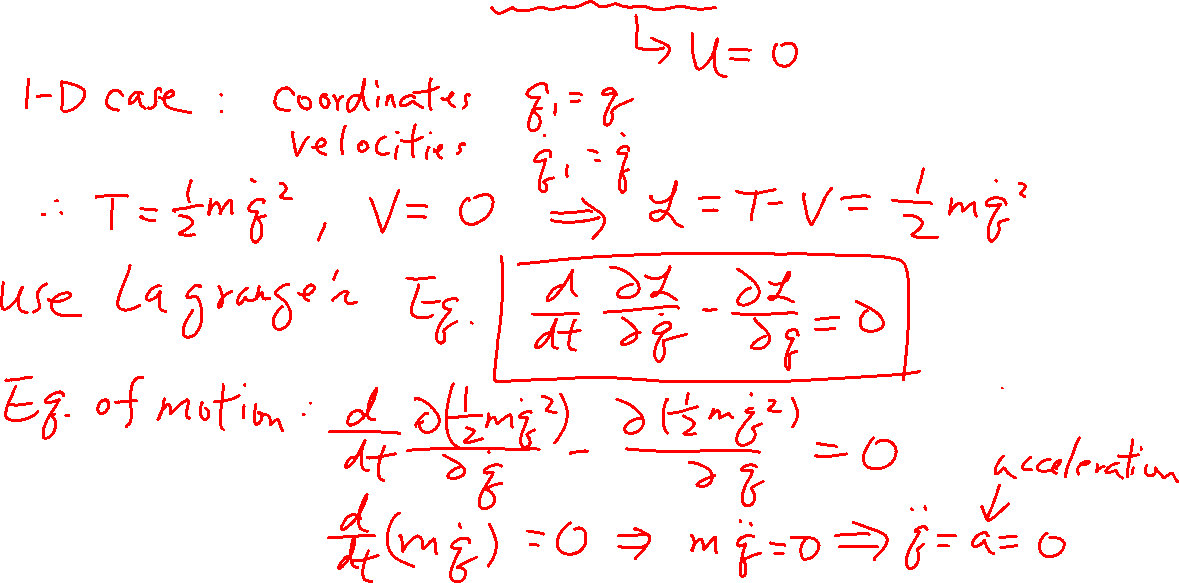 ↳ U = 0
1-D case : coordinates q₁ = q
velocities q̇₁ = q̇
∴ T = ½ m q̇² , V = 0 ⇒ ℒ = T - V = ½ m q̇²
use Lagrange's Eq. d/dt ∂ℒ/∂q̇ - ∂ℒ/∂q = 0
Eq. of motion : d/dt ∂(½ m q̇²)/∂q̇ - ∂(½ m q̇²)/∂q = 0
acceleration
d/dt (m q̇) = 0 ⇒ m q̈ = 0 ⇒ q̈ = a = 0